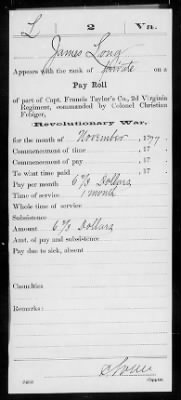 L 2 Va.
James Long
Appears with the rank of Private on a
Pay Roll
of part of Capt. Francis Taylor's Co., 2d Virginia
Regiment, commanded by Colonel Christian
Febiger,
Revolutionary War.
for the month of November, 1777
Commencement of time , 17
Commencement of pay , 17
To what time paid , 17
Pay per month 6⅔ Dollars
Time of service 1 month
Whole time of service
Subsistence
Amount 6⅔ Dollars
Amt. of pay and subsistence
Pay due to sick, absent
Casualties
Remarks:
Copyist.